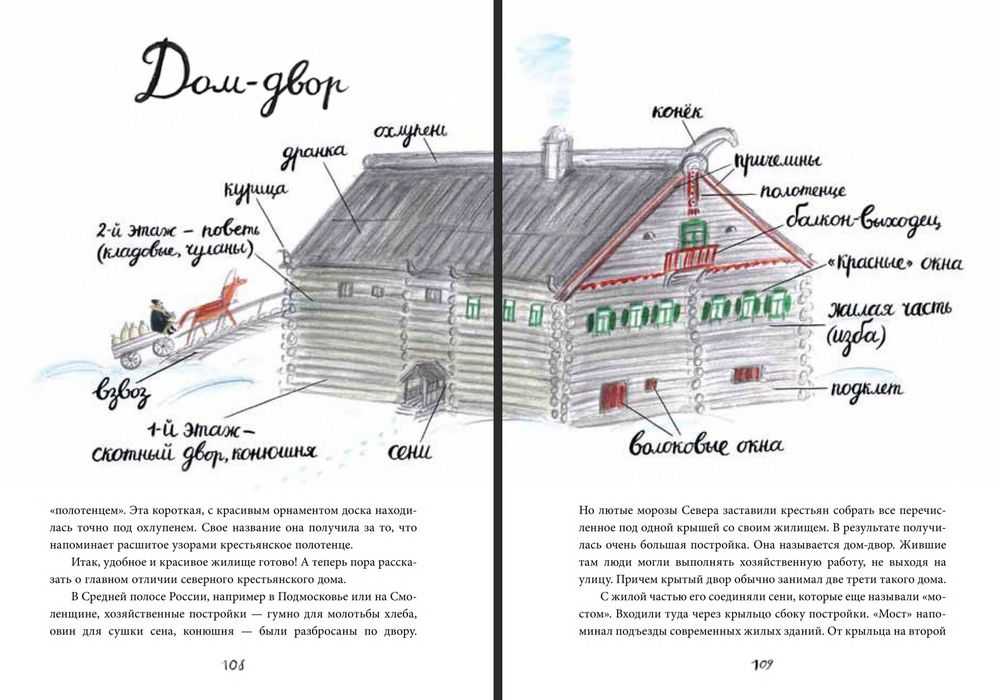 Дом-двор
охлупень
дранка
курица
2-й этаж – поветь
(кладовые, чуланы)
взвоз
1-й этаж –
скотный двор, конюшня
сени
«полотенцем». Эта короткая, с красивым орнаментом доска находи-
лась точно под охлупенем. Свое название она получила за то, что
напоминает расшитое узорами крестьянское полотенце.
Итак, удобное и красивое жилище готово! А теперь пора расска-
зать о главном отличии северного крестьянского дома.
В Средней полосе России, например в Подмосковье или на Смо-
ленщине, хозяйственные постройки — гумно для молотьбы хлеба,
овин для сушки сена, конюшня — были разбросаны по двору.
108
конёк
причелины
полотенце
балкон-выходец
«Красные» окна
жилая часть
(изба)
подклет
волоковые окна
Но лютые морозы Севера заставили крестьян собрать все перечис-
ленное под одной крышей со своим жилищем. В результате получи-
лась очень большая постройка. Она называется дом-двор. Жившие
там люди могли выполнять хозяйственную работу, не выходя на
улицу. Причем крытый двор обычно занимал две трети такого дома.
С жилой частью его соединяли сени, которые еще называли «мо-
стом». Входили туда через крыльцо сбоку постройки. «Мост» напо-
минал подъезды современных жилых зданий. От крыльца на второй
109